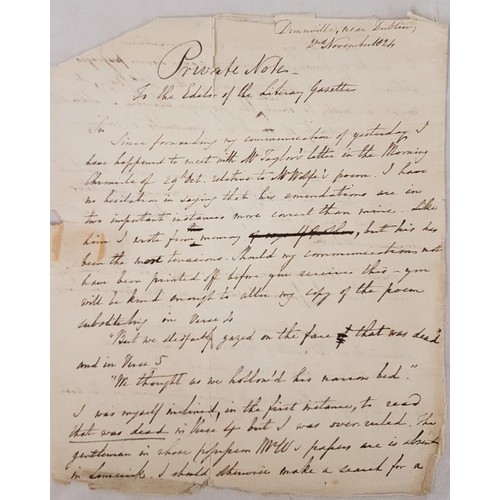 near Dublin,
2nd November 1824
Private Note
To the Editor of the Literary Gazette
Sir
Since forwarding my communication of yesterday, I
have happened to meet with Mr Taylor's letter in the Morning
Chronicle of 29th Oct. relative to Mr Wolfe's poem. I have
no hesitation in saying that his emendations are in
two important instances more correct than mine. Like
him I wrote from memory, but his has
been the most tenacious. Should my communication not
have been printed off before you receive this - you
will be kind enough to alter my copy of the poem
substituting in Verse 4
"But we stedfastly gazed on the face that was dead"
and in Verse 5
"We thought as we hollow'd his narrow bed".
I was myself inclined, in the first instance, to read
that was dead in Verse 4 but I was over ruled. The
gentleman in whose possession Mr W's papers are is absent
in Limerick. I should otherwise make a search for a